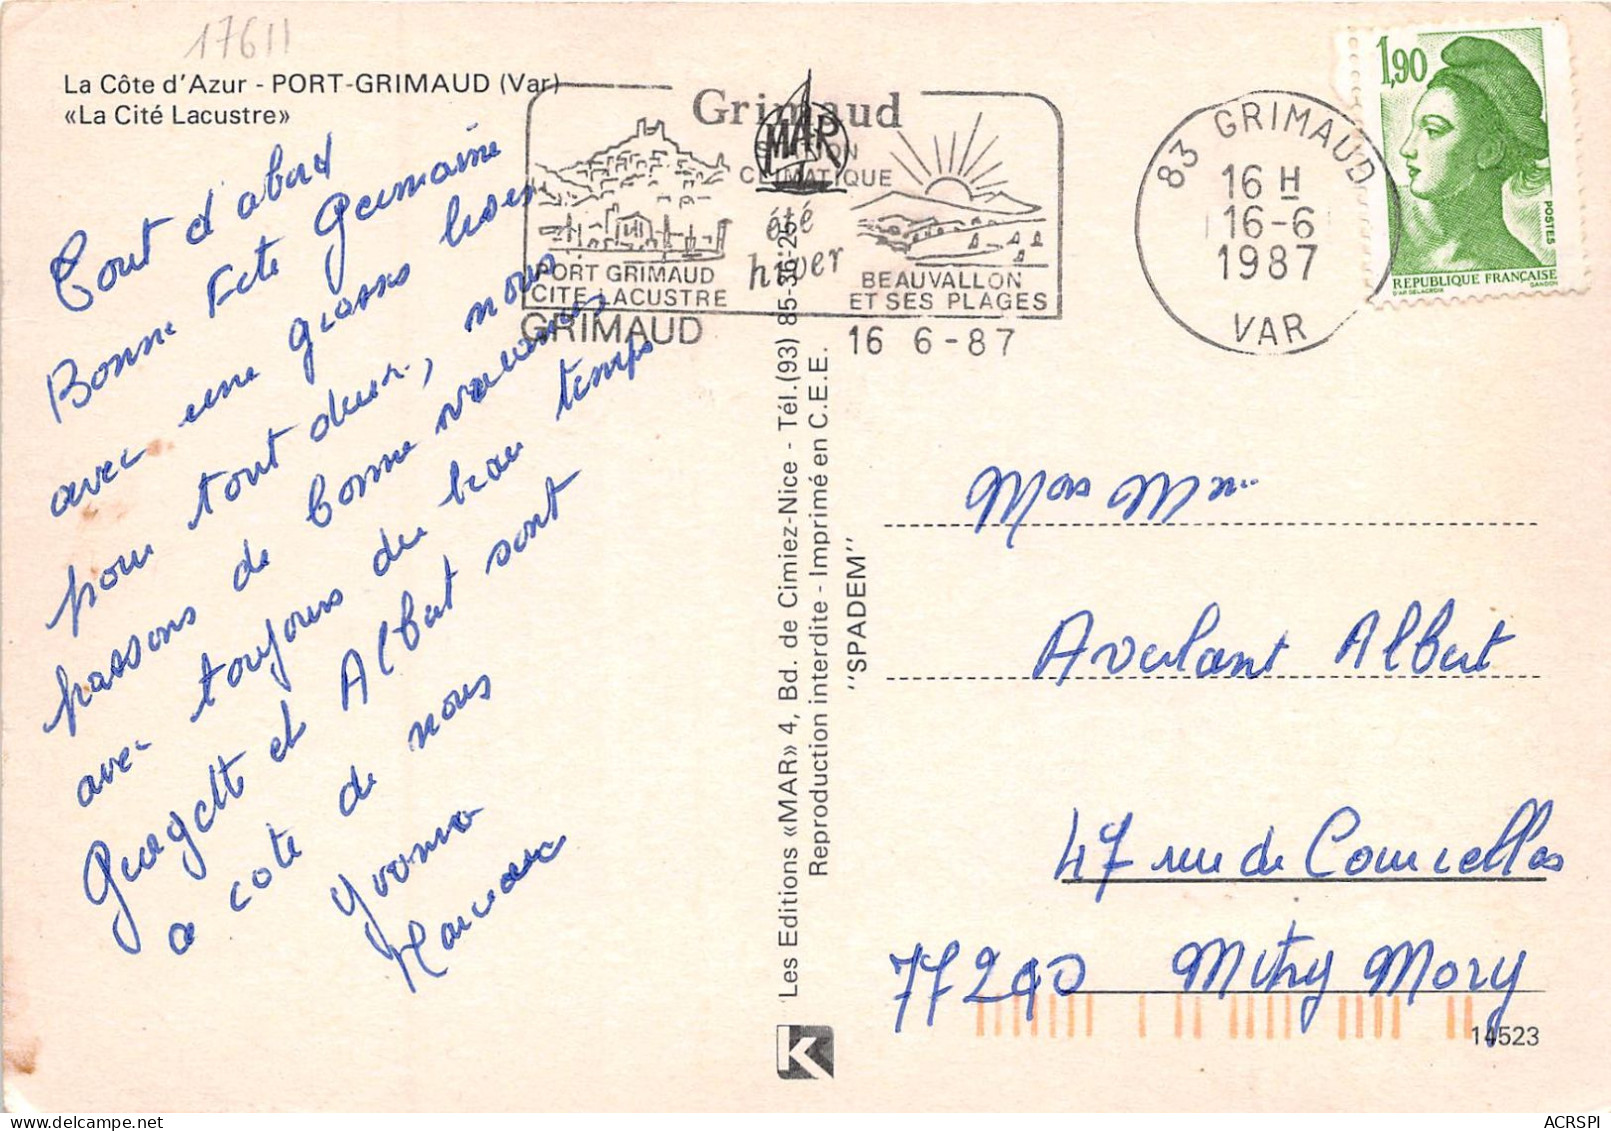 17611
La Côte d'Azur - PORT-GRIMAUD (Var)
«La Cité Lacustre»
Tout d'abord
Bonne Fete Germaine
avec une grosse bises
pour tout deux, nous
passons de bonne vacances
avec toujours du beau temps
Georgette et Albert sont
a cote de nous
Yvonne
Marceau
Grimaud
STATION
CLIMATIQUE
été
hiver
PORT GRIMAUD
CITE LACUSTRE
BEAUVALLON
ET SES PLAGES
GRIMAUD
16 6-87
MAR
83 GRIMAUD
16 H
16-6
1987
VAR
1,90
POSTES
REPUBLIQUE FRANÇAISE
D'AP. DELACROIX
GANDON
Les Editions «MAR» 4, Bd. de Cimiez-Nice - Tél.(93) 85-36-25
Reproduction interdite - Imprimé en C.E.E.
"SPADEM"
Averlant Albert
47 rue de Courcelles
77290 Mitry Mory
K
14523
ACRSPI